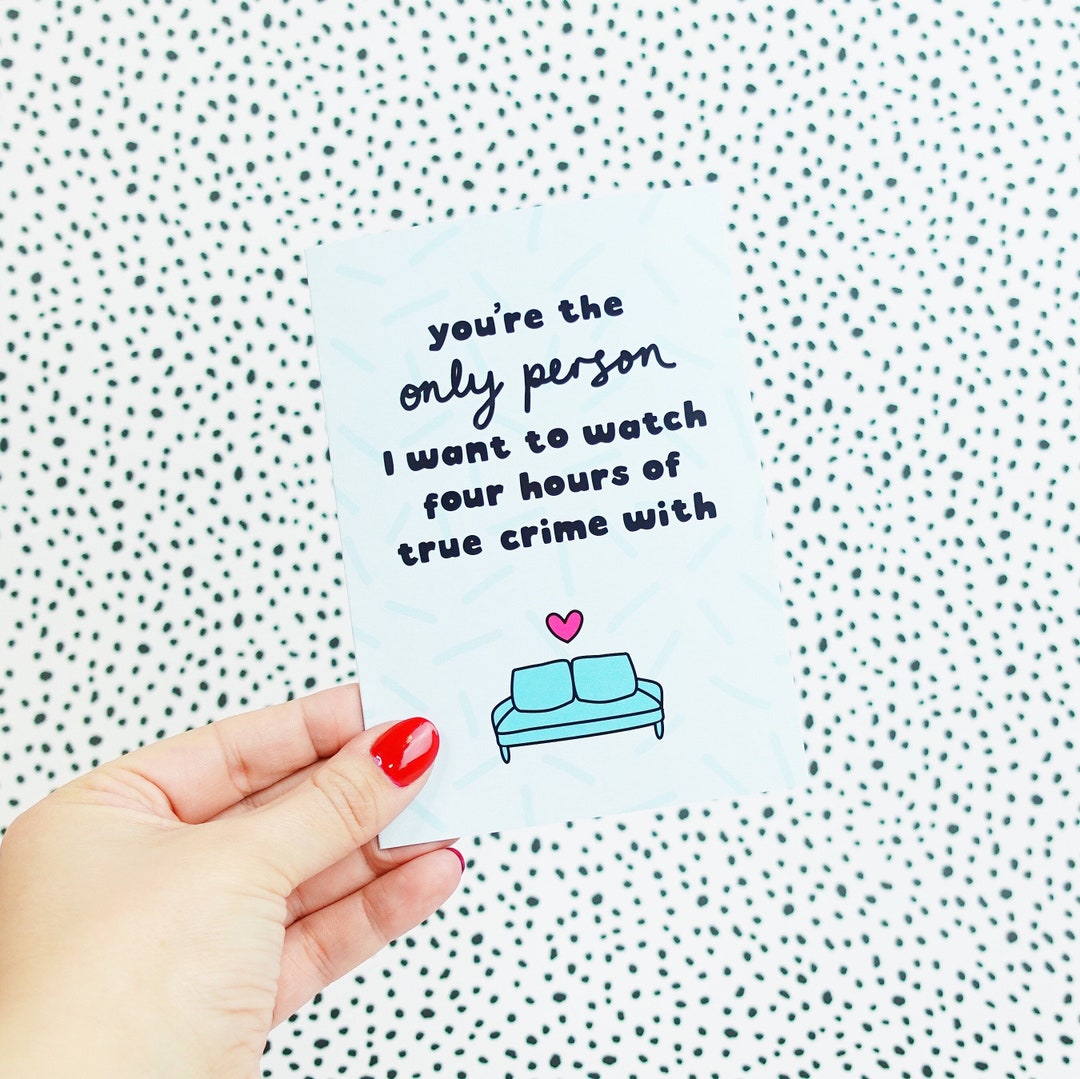 you're the
only person
I want to watch
four hours of
true crime with